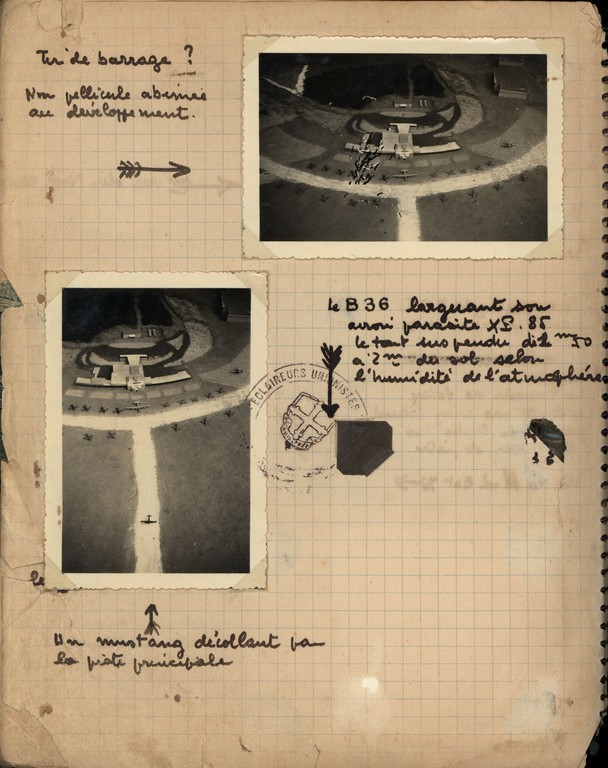 Tir de barrage ?
Non pellicule abimée
au développement.
le B 36 larguant son
avion parasite XF. 85
le tout suspendu
à 2m du sol selon
l'humidité de l'atmosphère
ECLAIREURS UNIONISTES
Un mustang décollant par
la piste principale